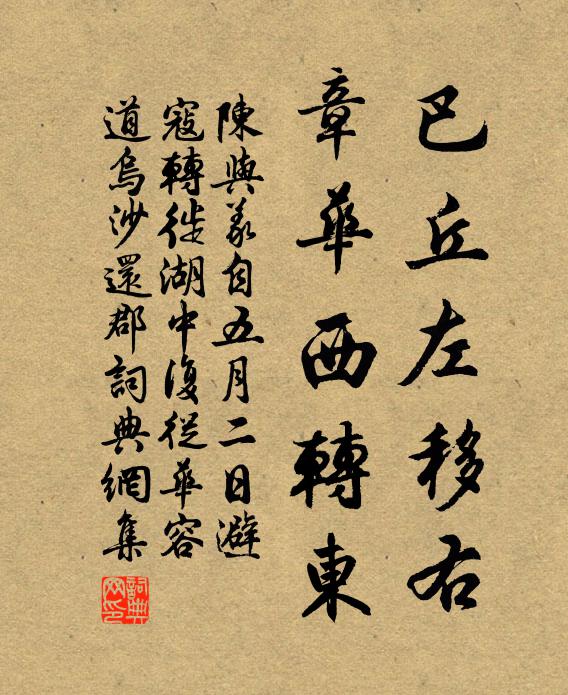 巴丘左移右
章華西轉東
陳與義自五月二日避
寇轉徙湖中復從華容
道烏沙還郡詞典網集
詞典网印